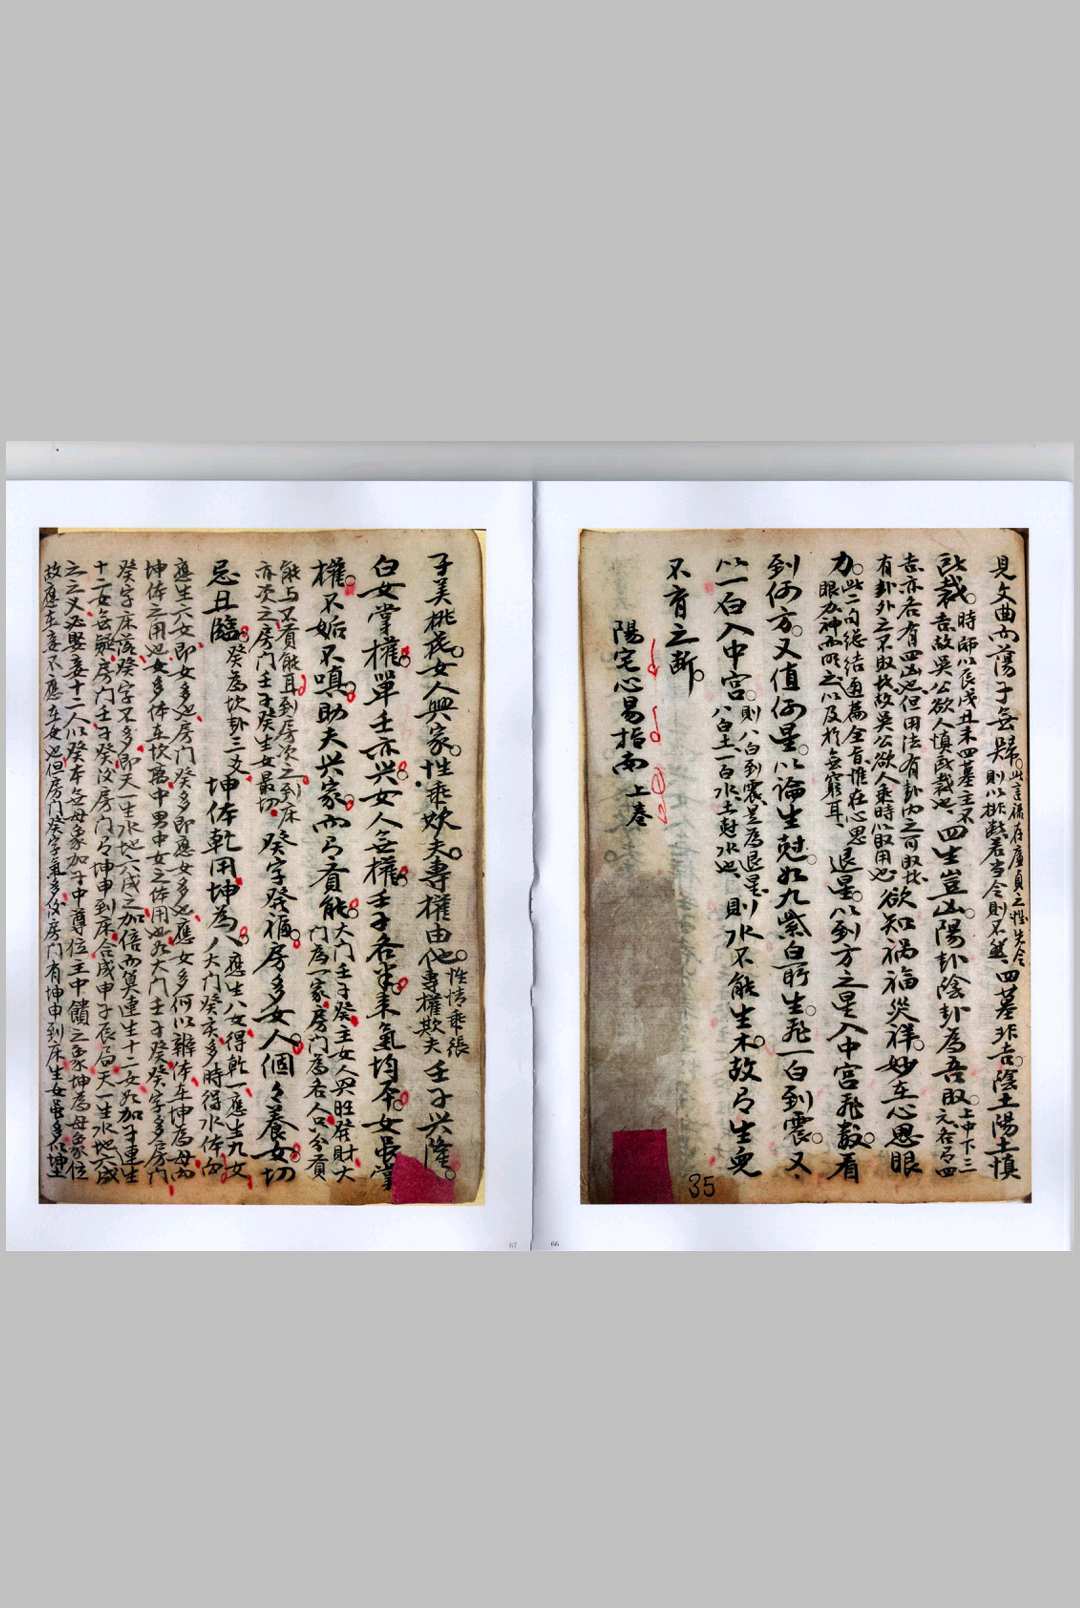 見文曲而蕩子無歸。此言祿存廉貞之性失令
則以推斷若当令則不然
四墓非吉。陰土陽土慎
哉。時師以辰戌丑未四墓主不
吉故吳公欲人慎哉裁也
四生豈凶。陽卦陰卦為吾取。上中下三
元各局四
吉亦各有四凶也但用法有卦内之可取找
有卦外之不取找故吳公欲人乘時以取用也
欲知禍福災祥。妙在心思眼
力。此二句總结通篇全旨惟在心思
眼力神而明之以及於無窮耳
退星。以到方之星入中宮飛数。看
到何方。又值何星。以論生尅。如九紫白所生。飛一白到震。又
以一白入中宮。則八白到震是為退星
八白土一白水土尅水也
則水不能生木。故曰生而
不育之断。
陽宅心易指南上卷
35
66
子美桃花女人興家。性乖妖夫專權由他。性情乖張
專權欺夫
壬子兴隆。
白女掌權。單壬亦兴女人無權。壬子各半来氣均平。女虽掌
權。不妬不嗔。助夫兴家。而曰賢能。大门壬子癸主女人興旺發財大
门為一家房门為各人口分賢
能与不賢能耳到房次之到床
亦次之房门壬子癸生女最切
癸字發福。房多女人。個々養女切
忌丑臨。癸為坎卦三爻
坤体乾用坤為八
應生八女得乾一應生九女
大门癸亥多時得水体而
應生六女即女多也房门癸多即應女多也應女多何以辦体在坤為母而
坤体之用也女多体在坎离中男中女之体用也如大门壬子癸癸字多房门
癸字床落癸字不多即天一生水地六成之加倍而算連生十二女如加子連生
十二女無疑房门壬子癸汶房门曰坤申到床合成申子辰局天一生水地六成
之之义必娶妾十二人以癸本無母象加子中尊位主中饋之象坤為母象位
故應在妾不應在女也但房门癸字氣多汶房门有坤申到床生女虽多似坤土
67